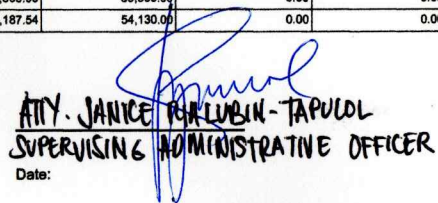 ,187.54 54,130.00 0.00 0.00
ATTY. JANICE LUBIN-TAPULOL
SUPERVISING ADMINISTRATIVE OFFICER
Date: